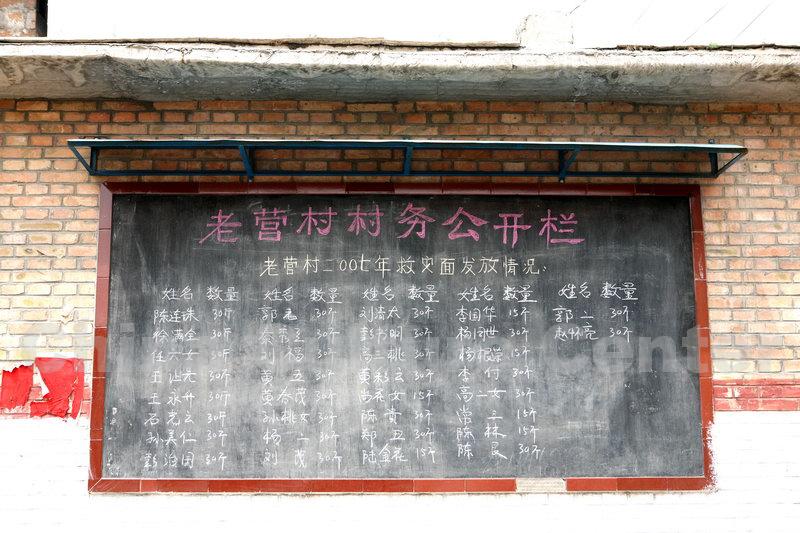 老营村村务公开栏
老营村二00七年救灾面发放情况
姓名 数量 姓名 数量 姓名 数量 姓名 数量 姓名 数量
陈连珠 30斤 郭 30斤 刘 30斤 李国华 15斤 郭二 30斤
满全 30斤 30斤 彭书明 30斤 杨 30斤 赵怀亮 30斤
任六女 30斤 刘福 30斤 高三桃 30斤 杨 15斤
王 30斤 黄五 30斤 黄彩云 30斤 李付 30斤
王永开 30斤 黄春茂 30斤 高花女 15斤 高二女 30斤
石克云 30斤 孙桃女 30斤 陈贵 30斤 常三 15斤
孙美仁 30斤 杨二 30斤 郑丑 30斤 陈林 15斤
彭治国 30斤 刘茂 30斤 陆金花 15斤 陈 30斤